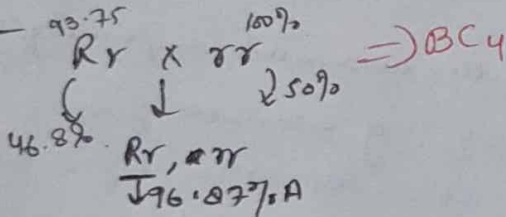 - 93.75 100%
Rr x rr => BC4
↓ 50%
46.8%.
Rr, rr
↓96.87%A